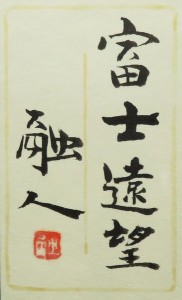 富士遠望
融人